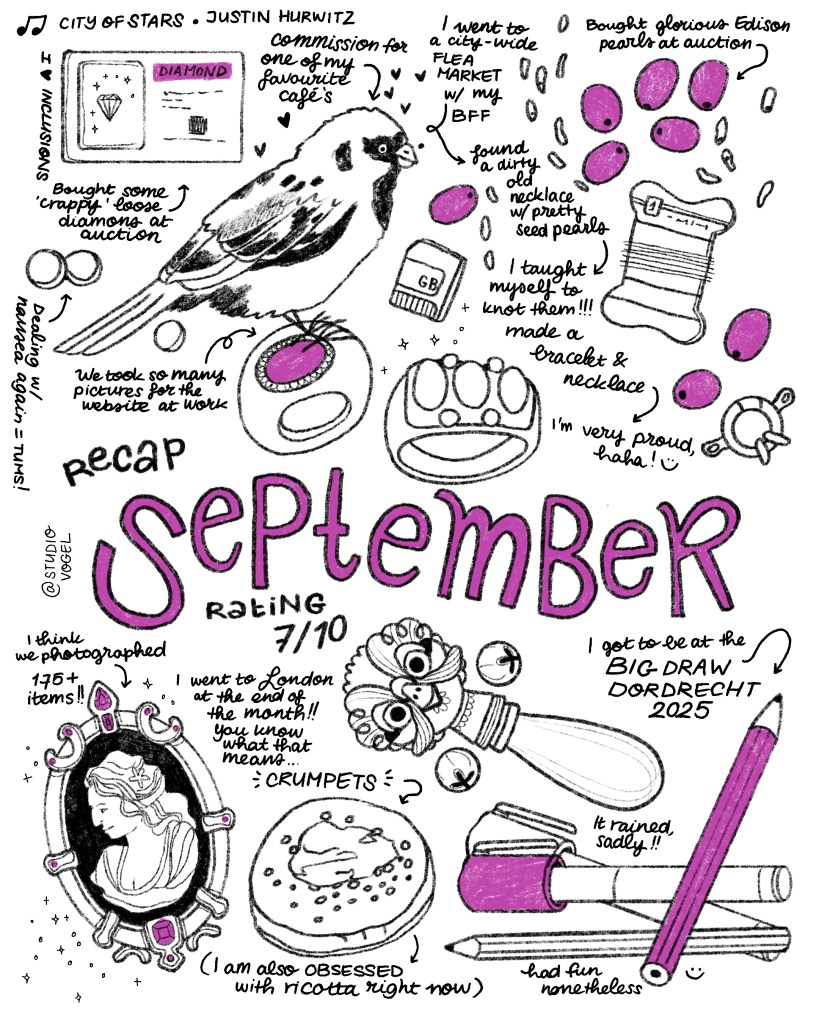 CITY OF STARS • JUSTIN HURWITZ
I ♥ INCLUSIONS
DIAMOND
Bought some
'crappy' loose
diamons at
auction
commission for
one of my
favourite
café's
I went to
a city-wide
FLEA
MARKET
w/ my
BFF
found
a dirty
old
necklace
w/ pretty
seed pearls
Bought glorious Edison
pearls at auction
1
GB
I taught
myself to
knot them!!!
made a
bracelet &
necklace
I'm very proud,
haha!
Dealing w/
nausea again = TUMS!
We took so many
pictures for the
website at work
Recap
September
@STUDIO
VOGEL
Rating
7/10
I think
we photographed
175+
items!!
I went to London
at the end of
the month!!
You know
what that
means...
CRUMPETS
(I am also OBSESSED
with ricotta right now)
I got to be at the
BIG DRAW
DORDRECHT
2025
It rained,
sadly!!
had fun
nonetheless